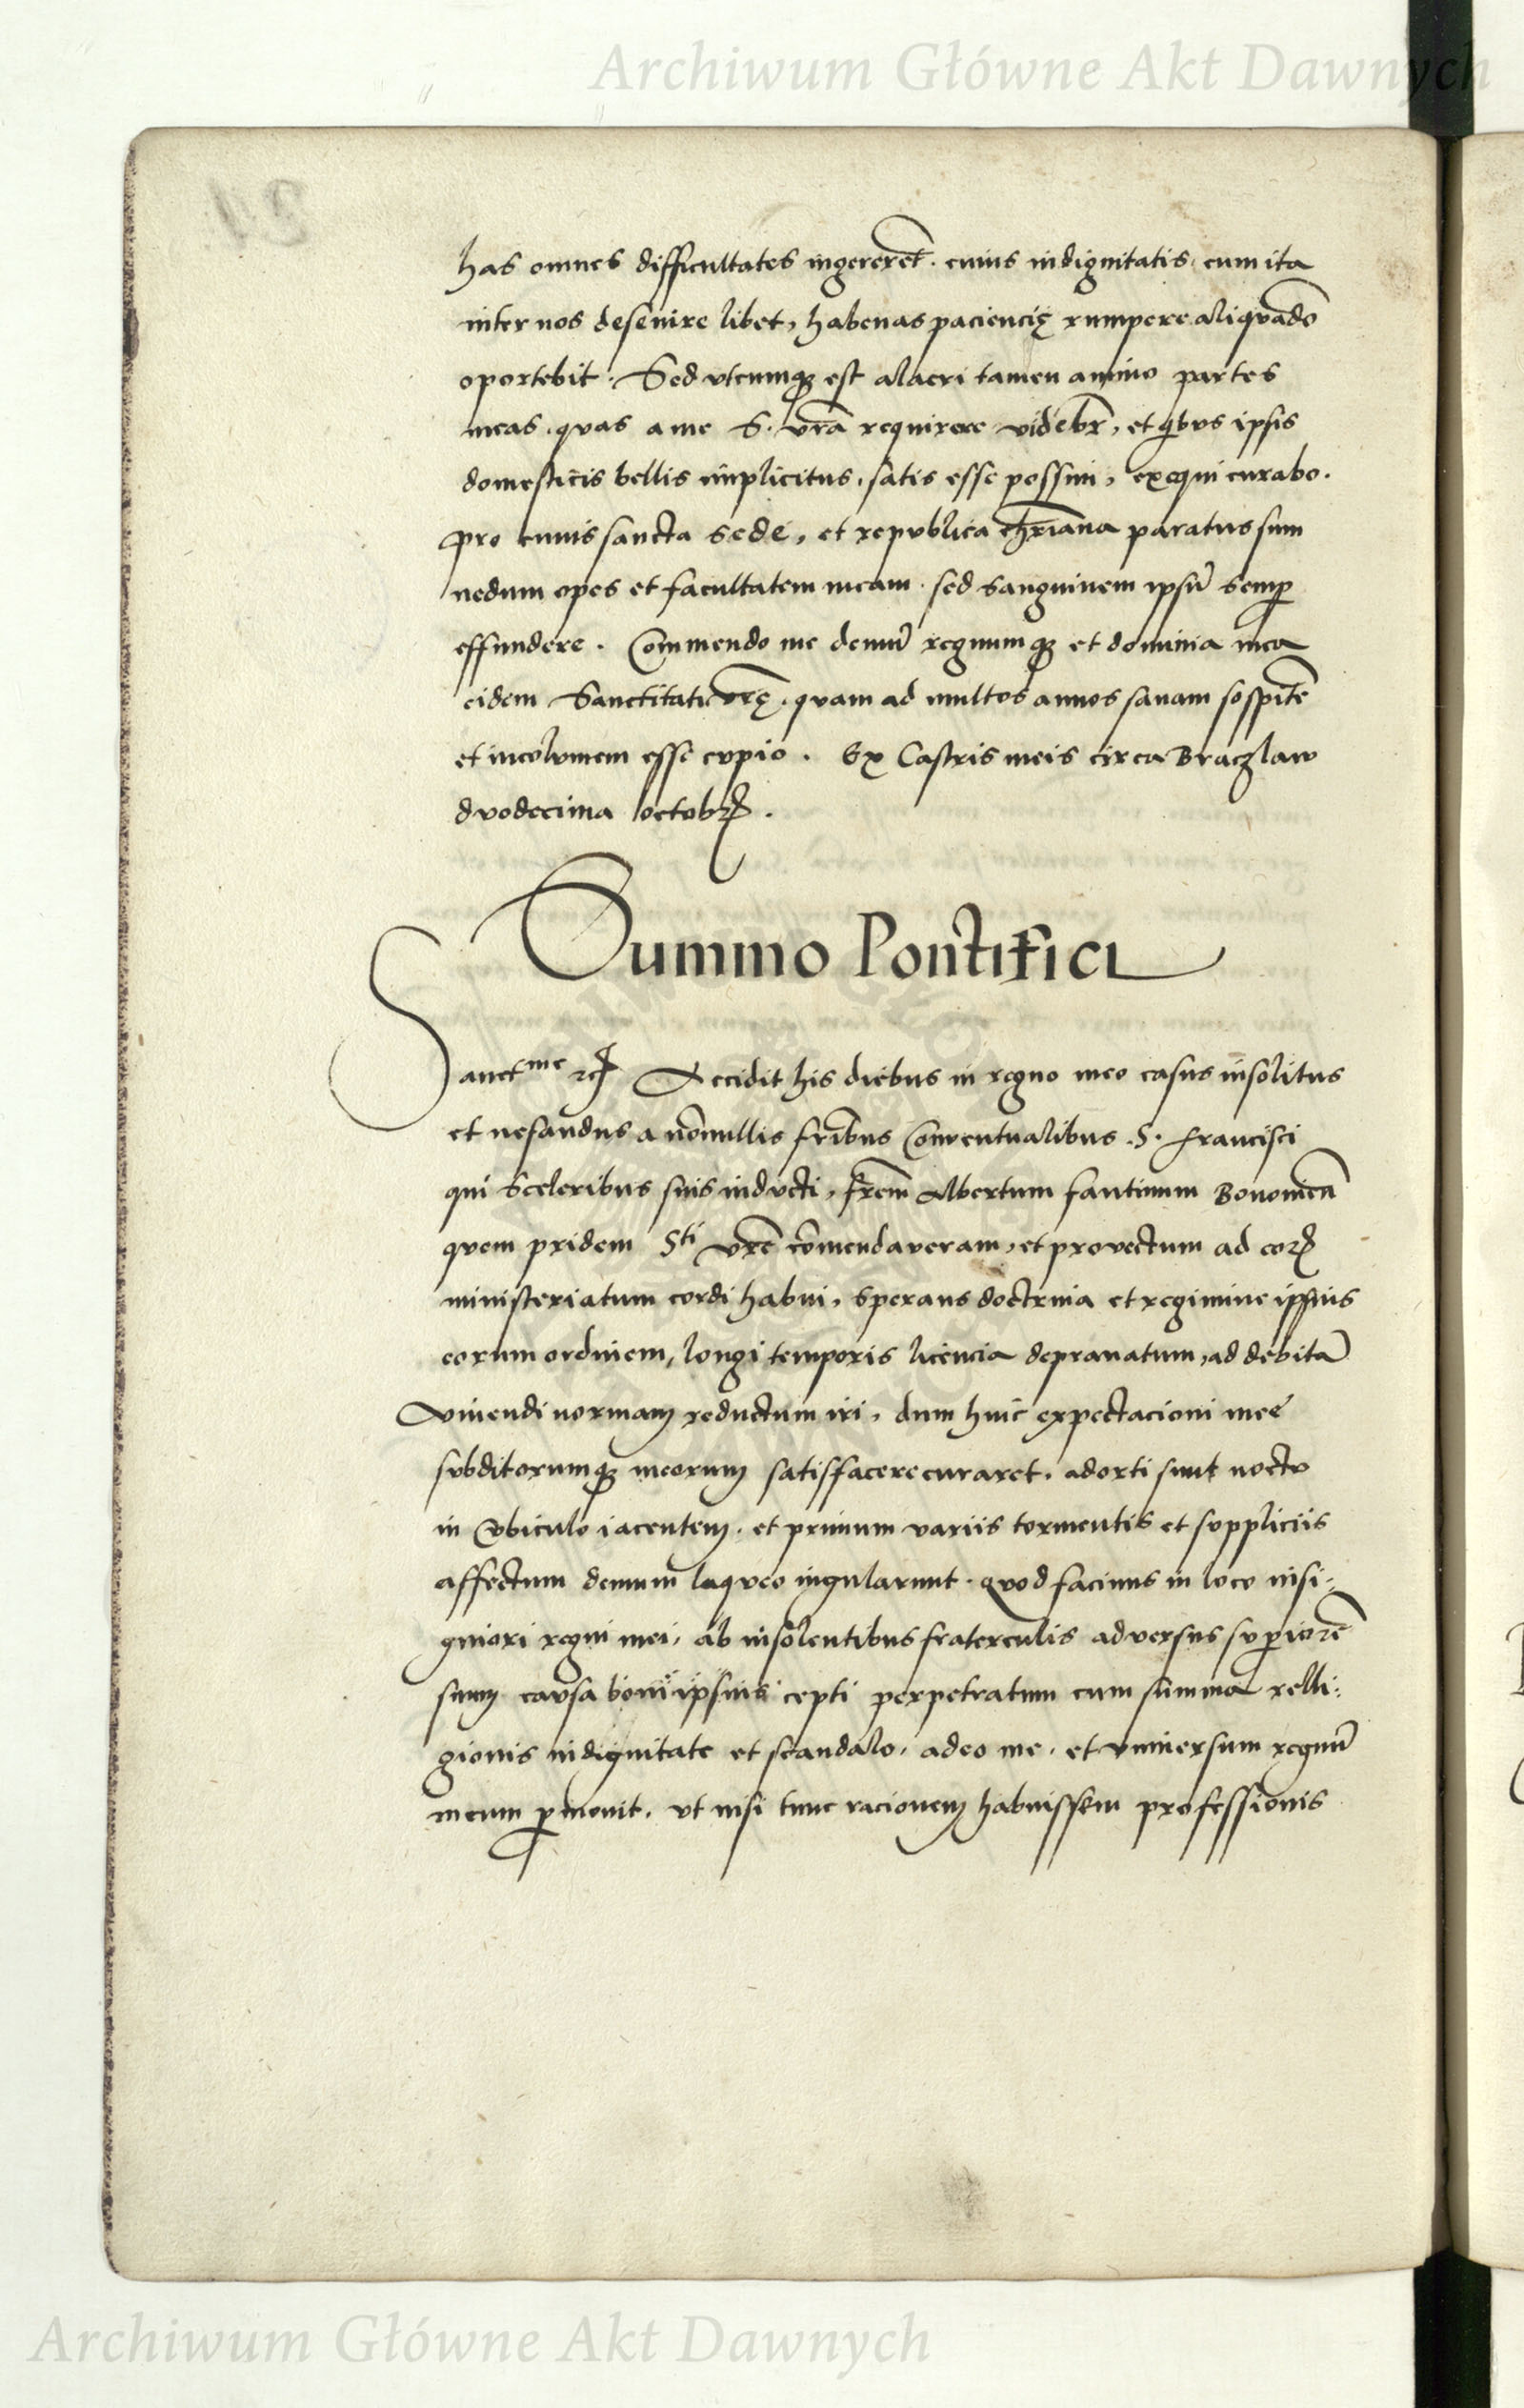 Archiwum Główne Akt Dawnych
has omnes difficultates ingererēt. cuius indignitatis, cum ita
inter nos desęuire libet, habenas paciencię rumpere aliqvādo
oportebit. Sed vtcumqꝫ est alacri tamen animo partes
meas. qvas a me S. vrā requirere videbr̄, et qibvs ipsis
domesticis bellis implicitus, satis esse possim, exequi curabo.
Pro cuius sancta sede, et repvblica chr̄iana paratus sum
nedum opes et facultatem meam. sed sangvinem ipsū semꝑ
effundere. Commendo me demū regnumqꝫ et dominia mea
eidem Sanctitati vrę. qvam ad multos annos sanam sospitē
et incolvmem esse cvpio. Ex Castris meis circa Braczlaw
dvodecima octobrꝭ.
Summo Pontifici
Sanctme rcꝭ Accidit his diebus in regno meo casus insolitus
et nefandus a nōnullis frībus Conventualibus S. Francisci
qui sceleribus suis indvcti, frēm Albertum fantinum Bononieñ
qvem pridem Sti vrē cōmendaveram, et provectum ad eorꝭ
ministeriatum cordi habui, sperans doctrina et regimine ipsius
eorum ordinem, longi temporis licencia depravatum, ad debitā
vivendi normam reductum iri, dum huic expectacioni meę
svbditorumqꝫ meorum satisfacere curaret. adorti sunt noctv
in cvbiculo iacentem. et primum variis tormentis et svppliciis
affectum demum laqveo iugularunt. qvod facinus in loco insi:
gniori regni mei, ab insolentibus fraterculis adversus svꝑiorē
suum cavsa boni ipsius cepti perpetratum cum summa relli:
gionis indignitate et scandalo, adeo me. et vniversum regnū
meum ꝑmovit. vt nisi tunc racionem habvissem professionis
Archiwum Główne Akt Dawnych